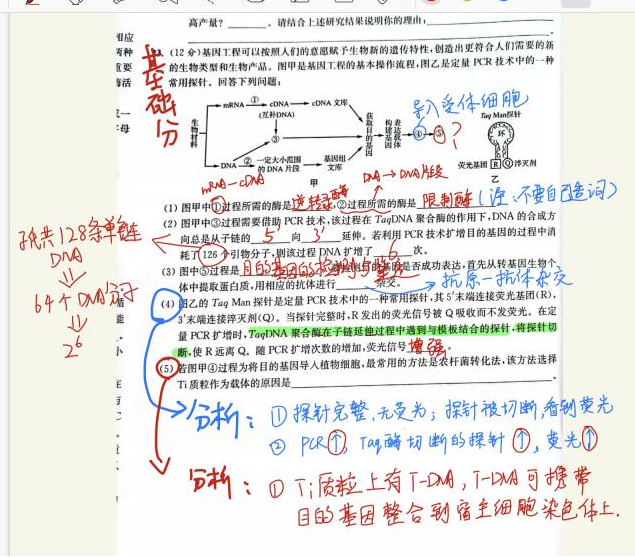 高产量?________。请结合上述研究结果说明你的理由:
相应
两种
重要
海活
基础分
(12分)基因工程可以按照人们的意愿赋予生物新的遗传特性,创造出更符合人们需要的新
的生物类型和生物产品。图甲是基因工程的基本操作流程,图乙是定量 PCR 技术中的一种
常用探针。回答下列问题:
导入受体细胞
mRNA ① cDNA cDNA 文库
(互补DNA)
生物材料
③
获取目的基因
构建基因表达载体
④ ⑤ ?
Taq Man探针
环
DNA ② 一定大小范围的 DNA 片段 基因组文库
荧光基团 R Q 淬灭剂
甲
乙
mRNA→cDNA
DNA→DNA片段
(1) 图甲中①过程所需的酶是逆转录酶,②过程所需的酶是 限制酶 (注:不要自己造词)
(2) 图甲中③过程需要借助 PCR 技术,该过程在 TaqDNA 聚合酶的作用下,DNA 的合成方
向总是从子链的 5' 向 3' 延伸。若利用 PCR 技术扩增目的基因的过程中消
耗了 126 个引物分子,则该过程 DNA 扩增了 6 次。
子代共128条单链
DNA
⇓
64个DNA分子
⇓
2^6
(3) 图中⑤过程是 目的基因的检测与鉴定 基因是否成功表达,首先从转基因生物个
体中提取蛋白质,用相应的抗体进行________杂交。
抗原—抗体杂交
(4) 图乙的 Taq Man 探针是定量 PCR 技术中的一种常用探针,其 5'末端连接荧光基团(R),
3'末端连接淬灭剂(Q)。当探针完整时,R 发出的荧光信号被 Q 吸收而不发荧光。在定
量 PCR 扩增时,TaqDNA 聚合酶在子链延伸过程中遇到与模板结合的探针,将探针切
断,使 R 远离 Q。随 PCR 扩增次数的增加,荧光信号 增强 。
(5) 若图甲④过程为将目的基因导入植物细胞,最常用的方法是农杆菌转化法,该方法选择
Ti 质粒作为载体的原因是________。
分析: ① 探针完整,无荧光;探针被切断,看到荧光
② PCR↑, Taq酶切断的探针↑, 荧光↑
分析: ① Ti质粒上有T-DNA, T-DNA可携带
目的基因整合到宿主细胞染色体上.